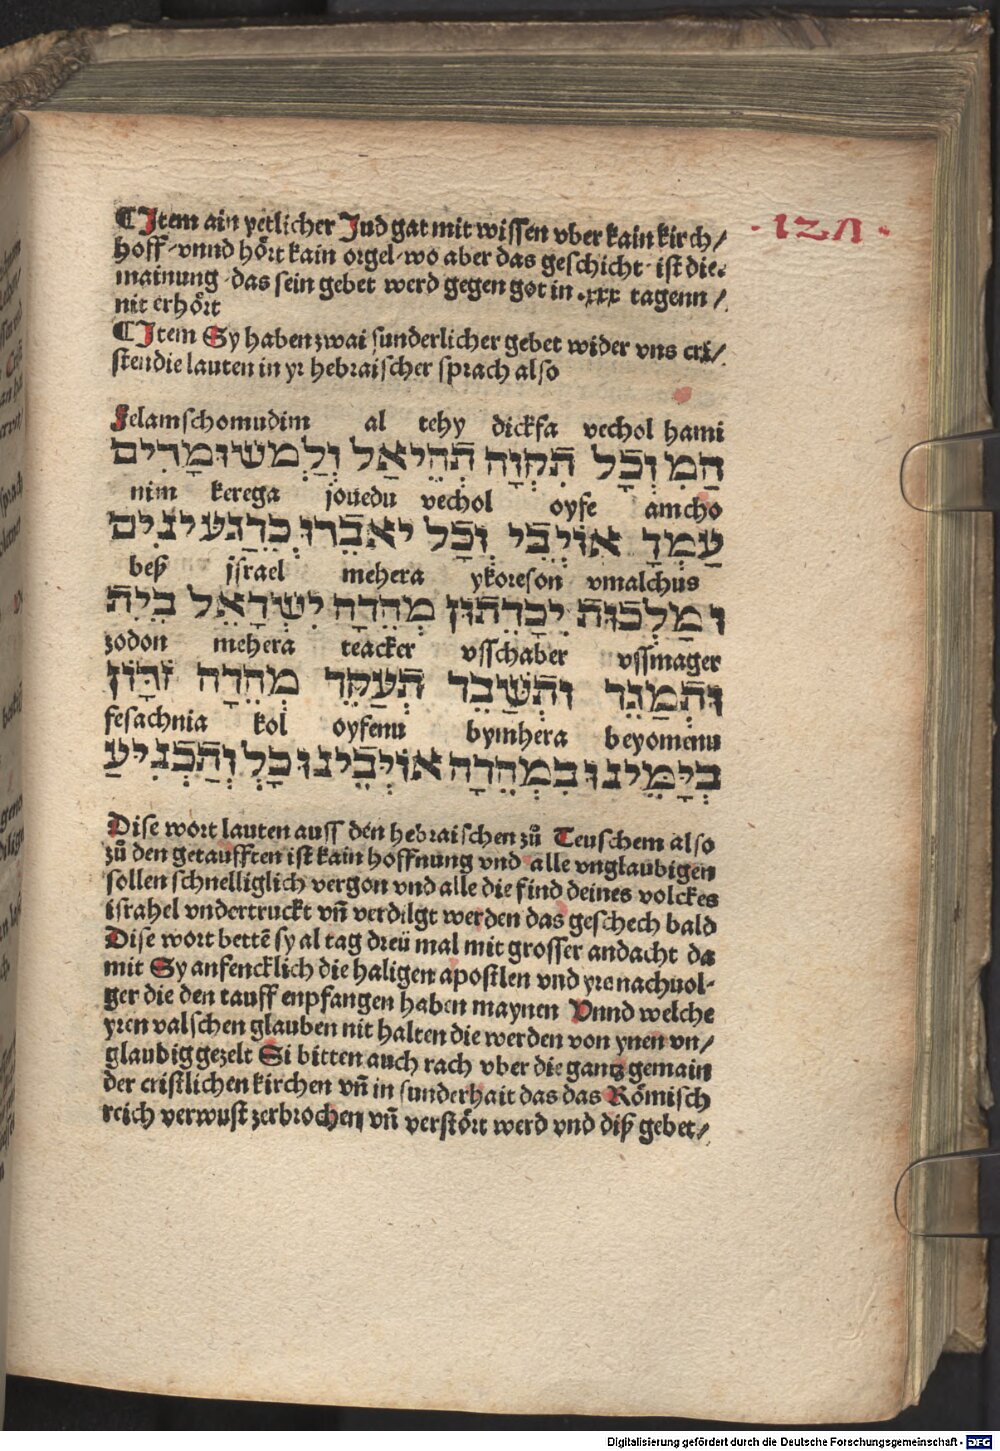 ¶ Item ain yetlicher Jud gat mit wissen vber kain kirch/
hoff · vnnd hört kain orgel · wo aber das geschicht · ist die
mainung · das sein gebet werd gegen got in .xxx tagenn /
nit erhört
¶ Item Sy haben zwai sunderlicher gebet wider vns cri/
sten die lauten in yr hebraischer sprach also
felamschomudim al tehy dickfa vechol hami
הַמִ וְכָל תִּקְוָה תְּהֵי אַל וְלַמְשׁוּמָדִים
nim kerega jouedu vechol oyfe amcho
עַמְךָ אוֹיְבֵי וְכָל יאבֵּדוּ כְּרֵגַע ינִים
beß jsrael mehera ykoreson vmalchus
וּמַלְכוּת יִכָרֵתוּן מְהֵרָה יִשְׂרָאֵל בֵּיִת
zodon mehera teacker vsschaber vssmager
וּתְמַגֵר וּתְשַׁבֵר תְּעַקֵר מְהֵרָה זדוֹן
fesachnia kol oyfenu bymhera beyomenu
בְיָמֵינוּ בִמְהֵרָה אוֹיְבֵינוּ כָּל וְתַּכְנִיעַ
Dise wort lauten auss den hebraischen zů Teuschem also
zů den getaufften ist kain hoffnung vnd alle vnglaubigen
sollen schnelliglich vergon vnd alle die find deines volckes
israhel vndertruckt vñ verdilgt werden das geschech bald
Dise wort bettē sy al tag dreü mal mit grosser andacht da
mit Sy anfencklich die haligen apostlen vnd yre nachuol-
ger die den tauff enpfangen haben maynen Vnnd welche
yren valschen glauben nit halten die werden von ynen vn/
glaubig gezelt Si bitten auch rach vber die gantz gemain
der cristlichen kirchen vñ in sunderhait das das Römisch
reich verwust zerbrochen vñ verstört werd vnd diß gebet/
Digitalisierung gefördert durch die Deutsche Forschungsgemeinschaft - DFG